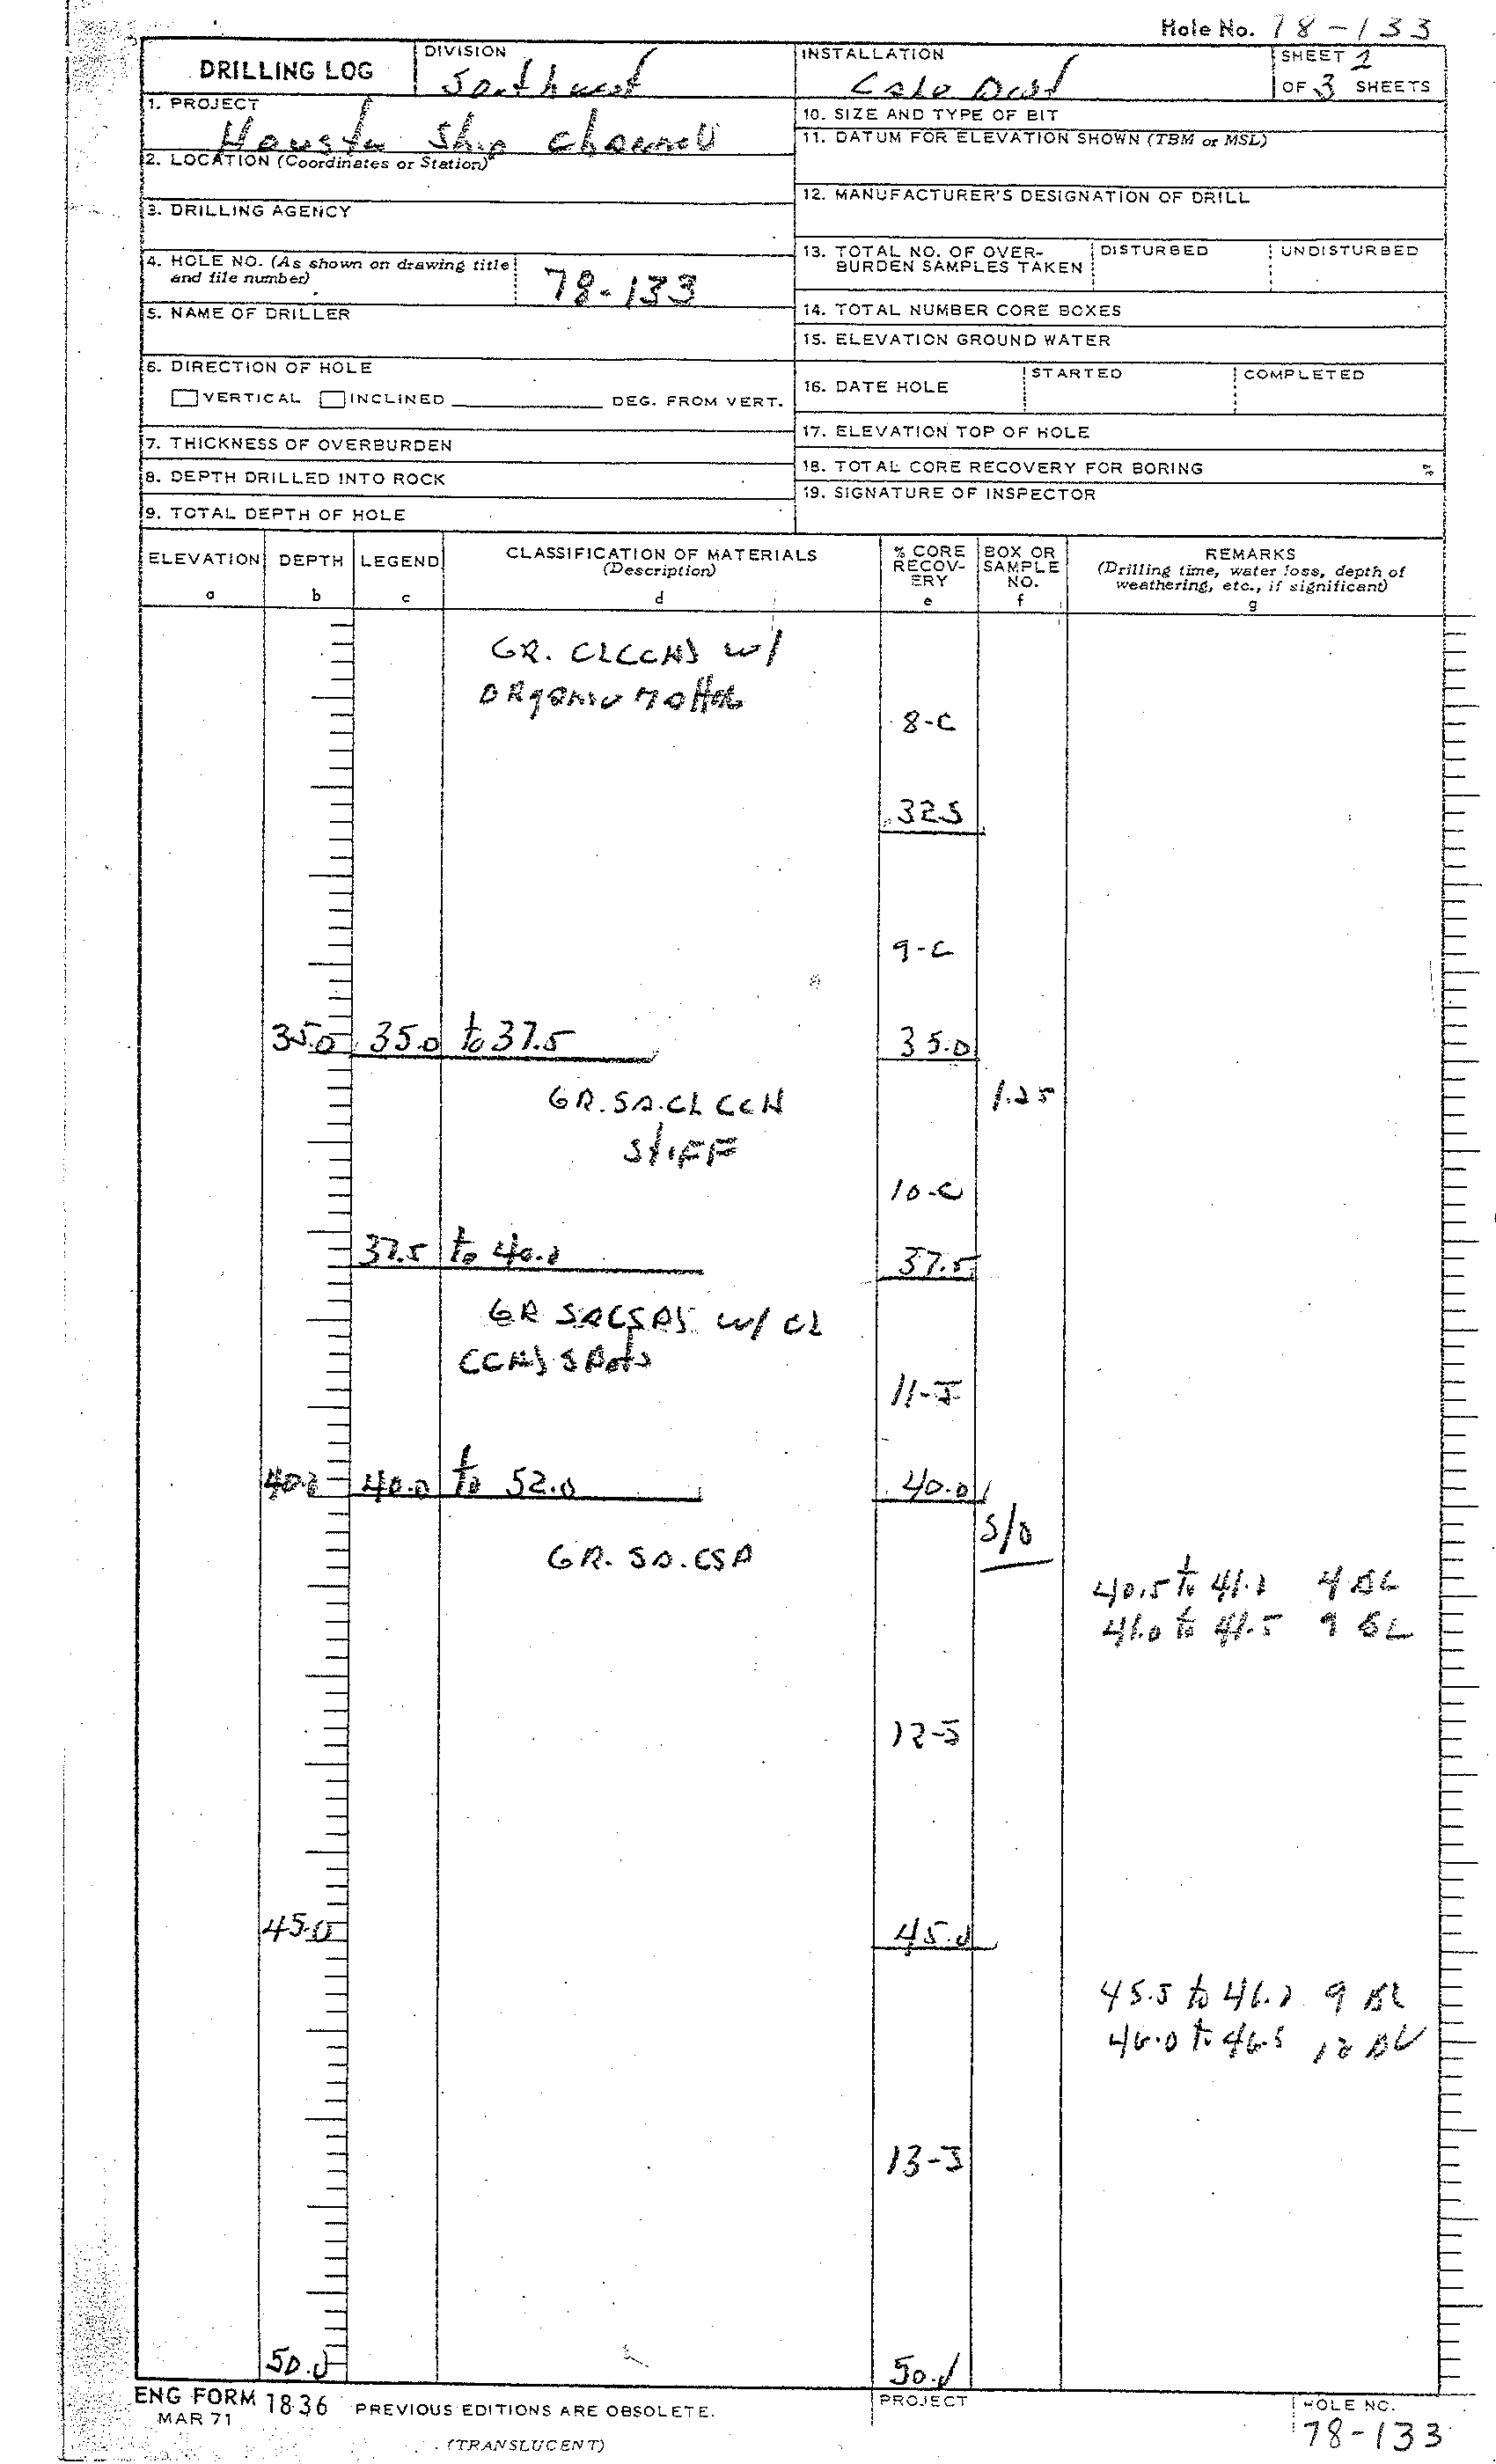 Hole No. 78-133
DRILLING LOG
DIVISION
Southwest
INSTALLATION
Galv Dist
SHEET 2
OF 3 SHEETS
1. PROJECT
Houston Ship Channel
2. LOCATION (Coordinates or Station)
3. DRILLING AGENCY
4. HOLE NO. (As shown on drawing title
and file number)
78-133
5. NAME OF DRILLER
6. DIRECTION OF HOLE
VERTICAL INCLINED DEG. FROM VERT.
7. THICKNESS OF OVERBURDEN
8. DEPTH DRILLED INTO ROCK
9. TOTAL DEPTH OF HOLE
10. SIZE AND TYPE OF BIT
11. DATUM FOR ELEVATION SHOWN (TBM or MSL)
12. MANUFACTURER'S DESIGNATION OF DRILL
13. TOTAL NO. OF OVER-
BURDEN SAMPLES TAKEN
DISTURBED
UNDISTURBED
14. TOTAL NUMBER CORE BOXES
15. ELEVATION GROUND WATER
16. DATE HOLE
STARTED
COMPLETED
17. ELEVATION TOP OF HOLE
18. TOTAL CORE RECOVERY FOR BORING %
19. SIGNATURE OF INSPECTOR
ELEVATION
a
DEPTH
b
LEGEND
c
CLASSIFICATION OF MATERIALS
(Description)
d
% CORE
RECOV-
ERY
e
BOX OR
SAMPLE
NO.
f
REMARKS
(Drilling time, water loss, depth of
weathering, etc., if significant)
g
GR. CLCCHS w/
ORganic matter
8-C
32.5
9-C
35.0 35.0 to 37.5 35.0
GR. SA. CL CCH
1.25
stiFF
10-C
37.5 to 40.0 37.5
GR SACSAS w/ CL
CCHS SPots
11-J
40.0 40.0 to 52.0 40.0
S/O
GR. SA. CSA
40.5 to 41.0 4 BL
41.0 to 41.5 9 BL
12-J
45.0 45.0
45.5 to 46.0 9 BL
46.0 to 46.5 12 BL
13-J
50.0 50.0
ENG FORM 1836
MAR 71
PREVIOUS EDITIONS ARE OBSOLETE.
(TRANSLUCENT)
PROJECT
HOLE NO.
78-133